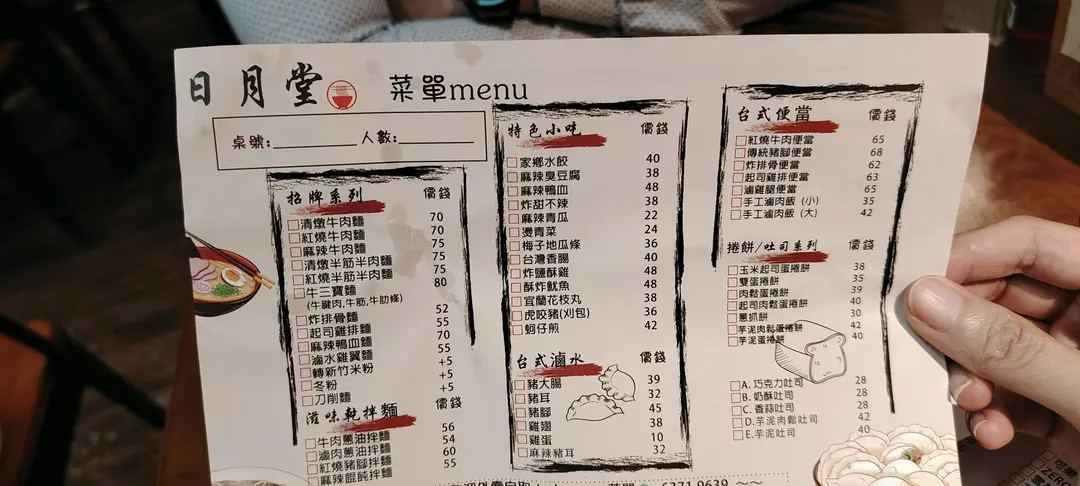 日月堂 菜單menu
桌號:________人數:________
招牌系列 價錢
清燉牛肉麵 70
紅燒牛肉麵 70
麻辣牛肉麵 75
清燉半筋半肉麵 75
紅燒半筋半肉麵 75
牛三寶麵 80
(牛腱肉,牛筋,牛肋條)
炸排骨麵 52
起司雞排麵 55
麻辣鴨血麵 70
滷水雞翼麵 55
轉新竹米粉 +5
冬粉 +5
刀削麵 +5
滋味乾拌麵 價錢
牛肉蔥油拌麵 56
滷肉蔥油拌麵 54
紅燒豬腳拌麵 60
麻辣餛飩拌麵 55
特色小吃 價錢
家鄉水餃 40
麻辣臭豆腐 38
麻辣鴨血 48
炸甜不辣 38
麻辣青瓜 22
燙青菜 24
梅子地瓜條 36
台灣香腸 40
炸鹽酥雞 48
酥炸魷魚 48
宜蘭花枝丸 38
虎咬豬(刈包) 36
蚵仔煎 42
台式滷水 價錢
豬大腸 39
豬耳 32
豬腳 45
雞翅 38
雞蛋 10
麻辣豬耳 32
台式便當 價錢
紅燒牛肉便當 65
傳統豬腳便當 68
炸排骨便當 62
起司雞排便當 63
滷雞腿便當 65
手工滷肉飯 (小) 35
手工滷肉飯 (大) 42
捲餅/吐司系列 價錢
玉米起司蛋捲餅 38
雙蛋捲餅 35
肉鬆蛋捲餅 39
起司肉鬆蛋捲餅 40
蔥抓餅 30
芋泥肉鬆蛋捲餅 42
芋泥蛋捲餅 40
A. 巧克力吐司 28
B. 奶酥吐司 28
C. 香蒜吐司 28
D.芋泥肉鬆吐司 42
E.芋泥吐司 40
6271 9639 ~~